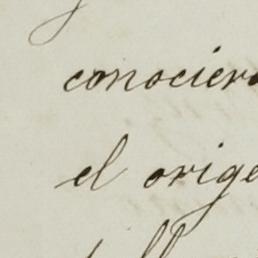 conociero
el orige